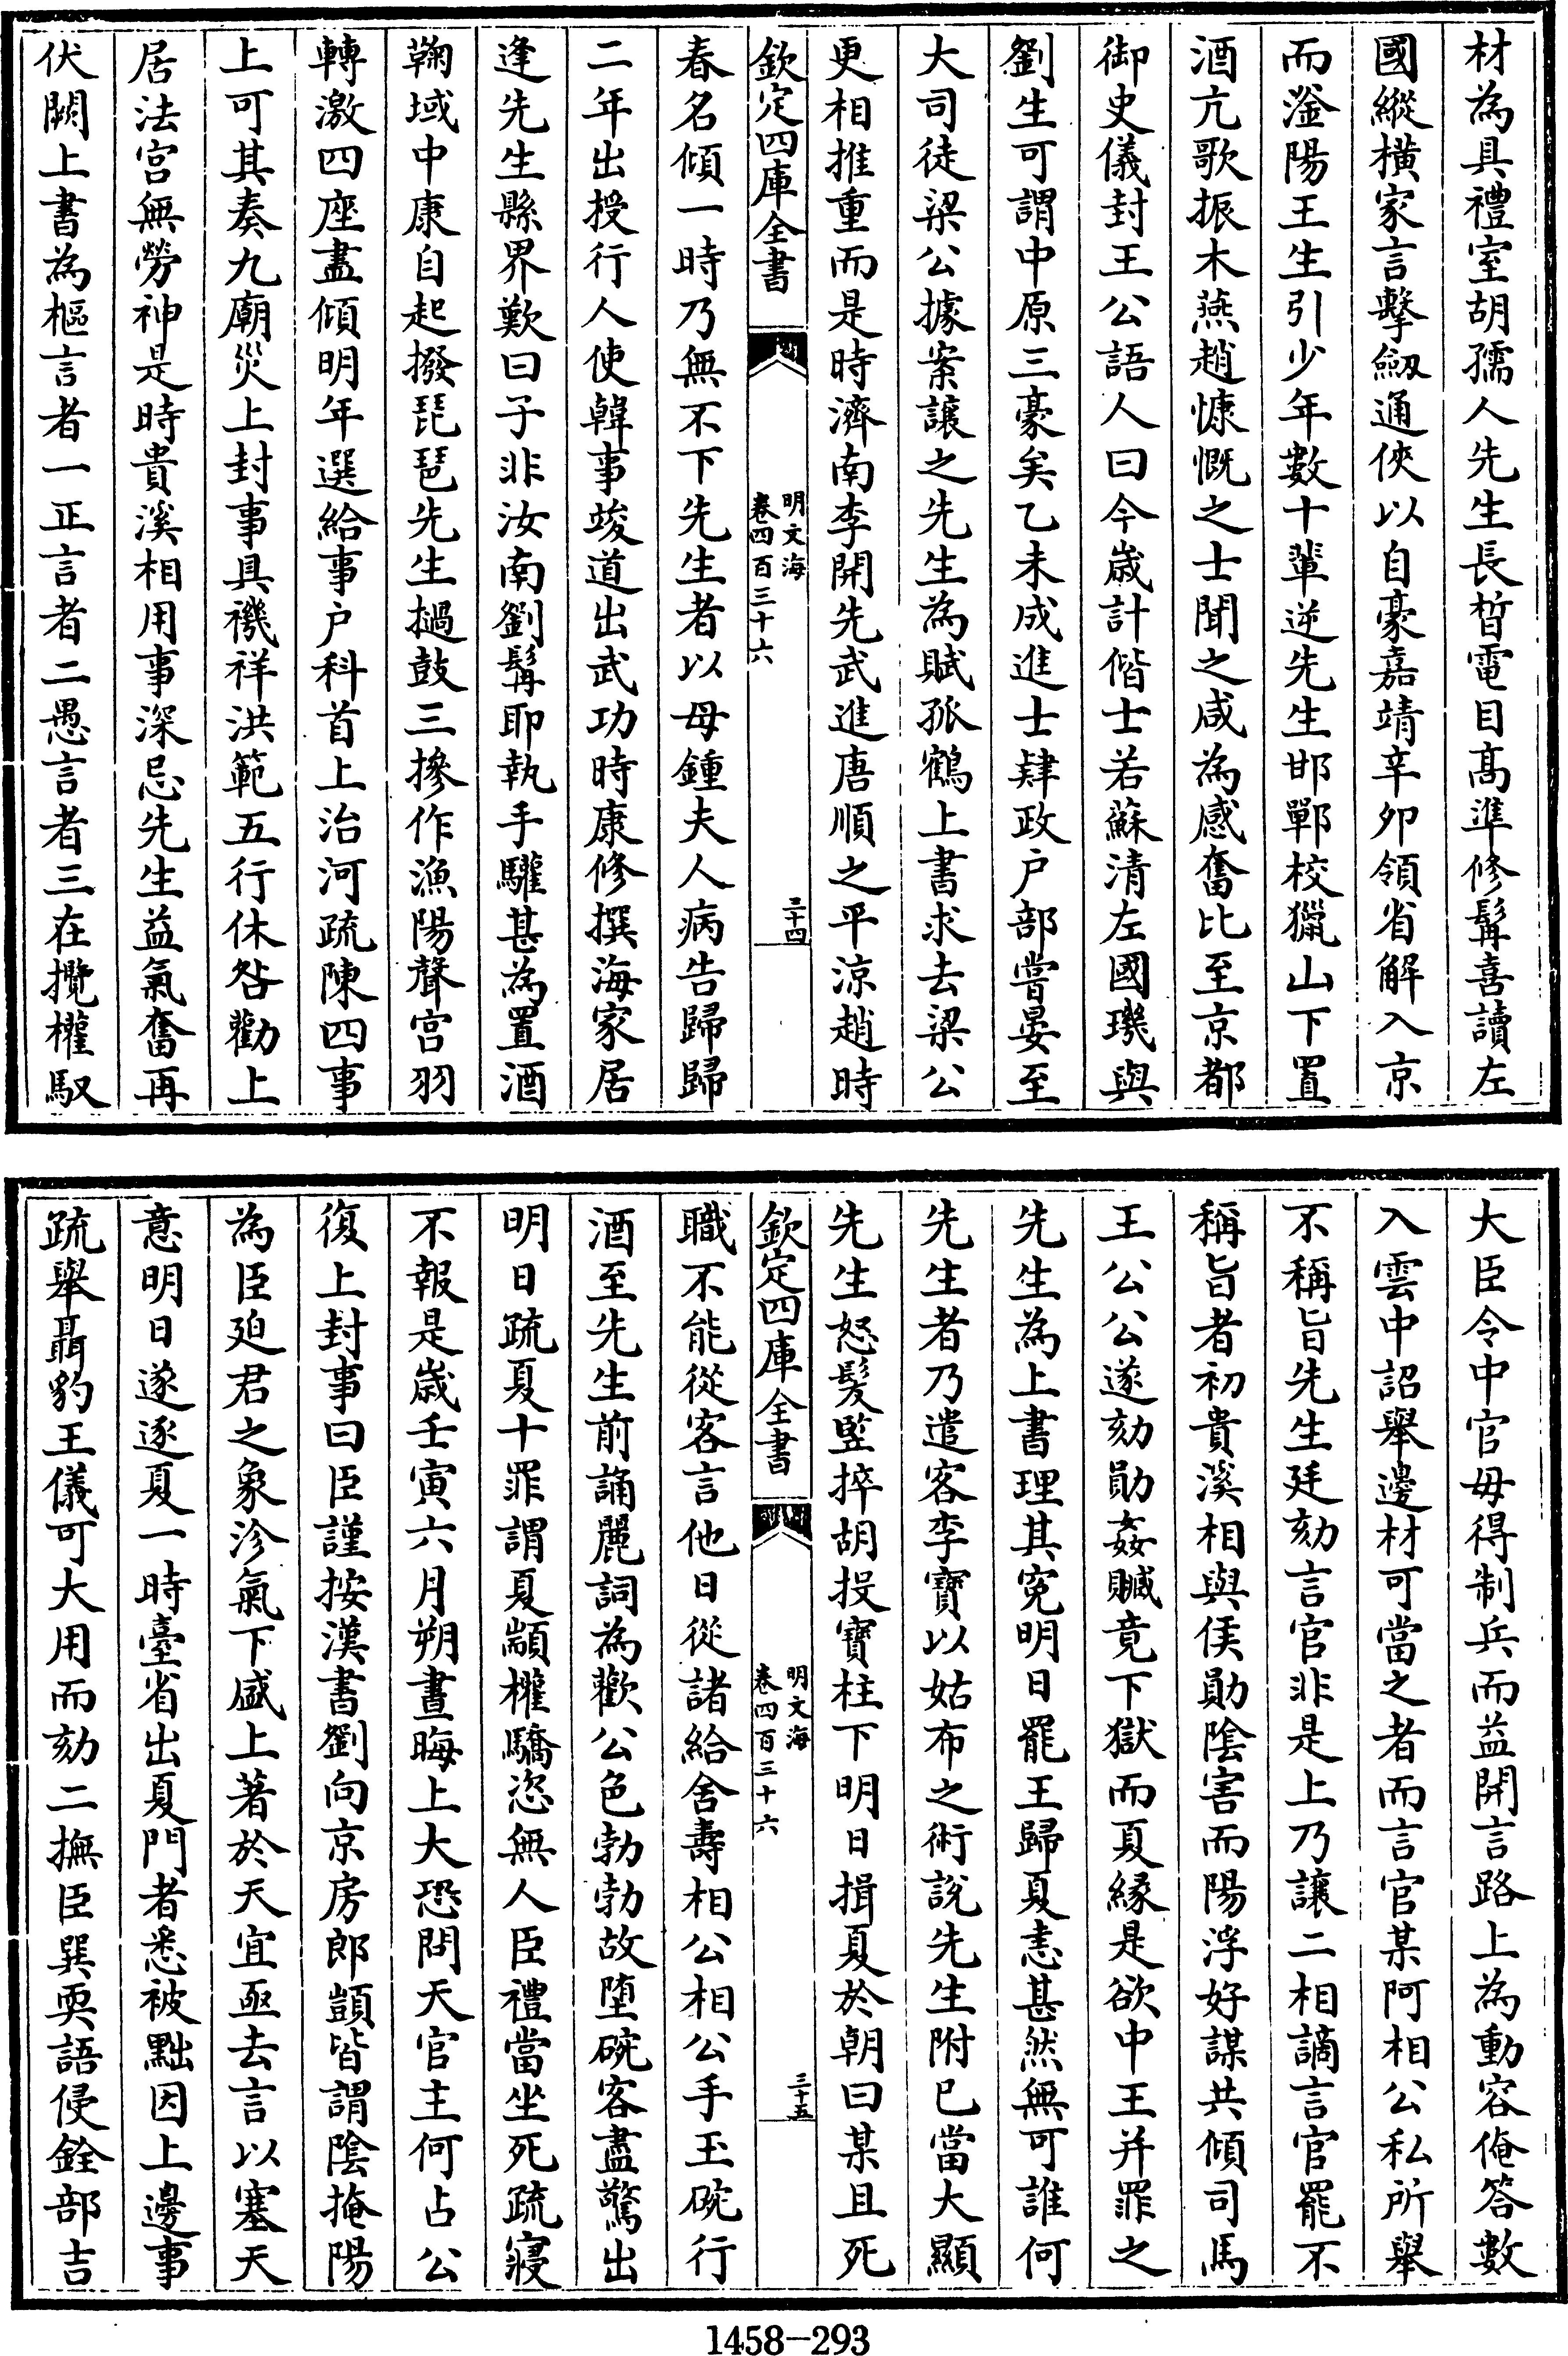 材為具禮室胡孺人先生長晳電目髙準修髯喜讀左
國縱橫家言擊劔通俠以自豪嘉靖辛卯領省解入京
而滏陽王生引少年數十輩逆先生邯鄲校獵山下置
酒亢歌振木燕趙慷慨之士聞之咸為感奮比至京都
御史儀封王公語人曰今嵗計偕士若蘇清左國璣與
劉生可謂中原三豪矣乙未成進士肄政户部嘗晏至
大司徒梁公據案讓之先生為賦孤鶴上書求去梁公
更相推重而是時濟南李開先武進唐順之平涼趙時
欽定四庫全書
明文海
卷四百三十六
三十四
春名傾一時乃無不下先生者以母鍾夫人病告歸歸
二年出授行人使韓事竣道出武功時康修撰海家居
逢先生縣界歎曰子非汝南劉髯耶執手驩甚為置酒
鞠域中康自起撥琵琶先生撾鼓三摻作漁陽聲宫羽
轉激四座盡傾明年選給事户科首上治河疏陳四事
上可其奏九廟災上封事具禨祥洪範五行休咎勸上
居法宫無勞神是時貴溪相用事深忌先生益氣奮再
伏闕上書為樞言者一正言者二愚言者三在攬權馭
大臣令中官毋得制兵而益開言路上為動容俺答數
入雲中詔舉邊材可當之者而言官某阿相公私所舉
不稱旨先生廷劾言官非是上乃讓二相謫言官罷不
稱旨者初貴溪相與侯勛陰害而陽浮好謀共傾司馬
王公公遂劾勛姦贓竟下獄而夏縁是欲中王并罪之
先生為上書理其寃明日罷王歸夏恚甚然無可誰何
先生者乃遣客李寳以姑布之術說先生附已當大顯
先生怒髮竪捽胡投寳柱下明日揖夏於朝曰某且死
欽定四庫全書
明文海
卷四百三十六
三十五
職不能從客言他日從諸給舍壽相公相公手玉碗行
酒至先生前誦麗詞為歡公色勃勃故堕碗客盡驚出
明日疏夏十罪謂夏顓權驕恣無人臣禮當坐死疏寢
不報是嵗壬寅六月朔晝晦上大恐問天官主何占公
復上封事曰臣謹按漢書劉向京房郎顗皆謂陰掩陽
為臣廹君之象沴氣下盛上著於天宜亟去言以塞天
意明日遂逐夏一時臺省出夏門者悉被黜因上邊事
疏舉聶豹王儀可大用而劾二撫臣巽耎語侵銓部吉
1458-293